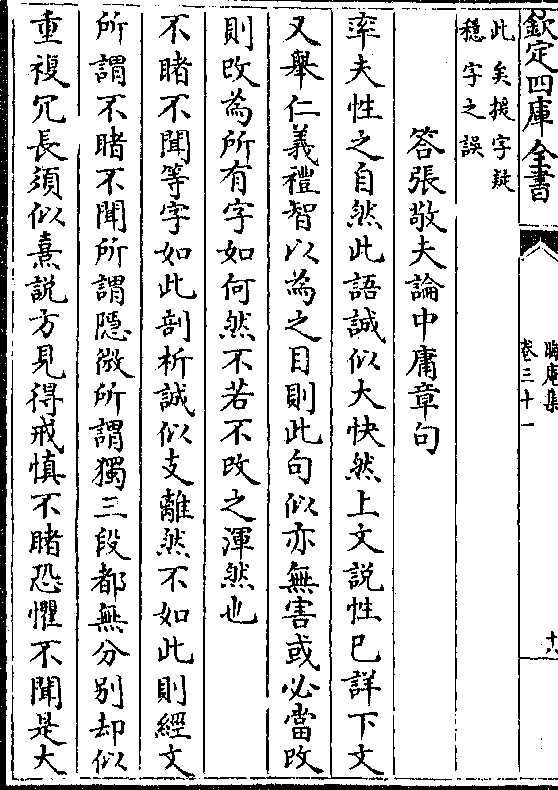 欽定四庫全書
晦庵集
卷三十一
十六
此矣援字疑
穩字之誤
答張敬夫論中庸章句
率夫性之自然此語誠似大快然上文説性已詳下文
又舉仁義禮智以為之目則此句似亦無害或必當改
則改為所有字如何然不若不改之渾然也
不睹不聞等字如此剖析誠似支離然不如此則經文
所謂不睹不聞所謂隱微所謂獨三段都無分别却似
重複冗長須似熹説方見得戒慎不睹恐懼不聞是大